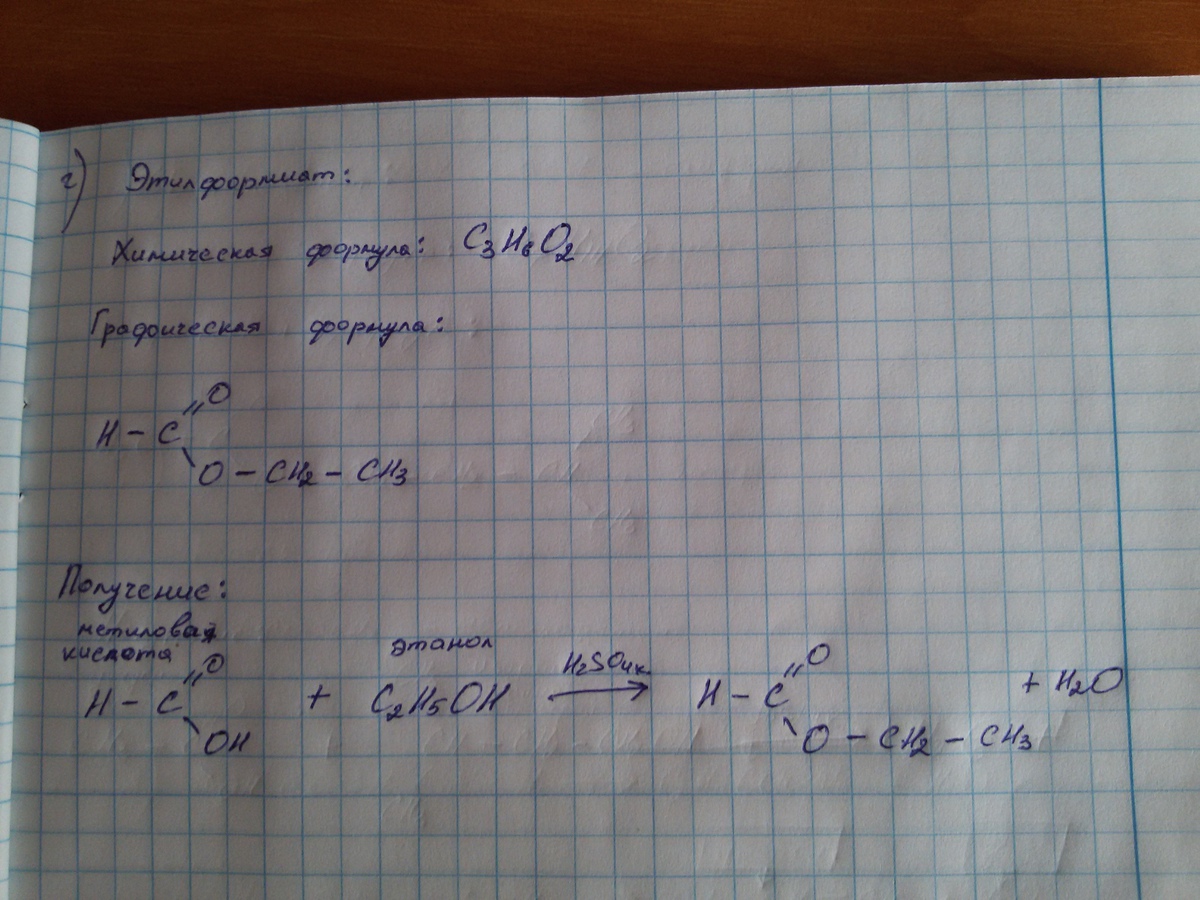 г) Этилформиат:
Химическая формула: C3H6O2
Графическая формула:
O
H - C
O - CH2 - CH3
Получение:
метиловая
кислота
этанол
O
H - C
OH
+ C2H5OH
H2SO4к.
→
O
H - C
O - CH2 - CH3
+ H2O